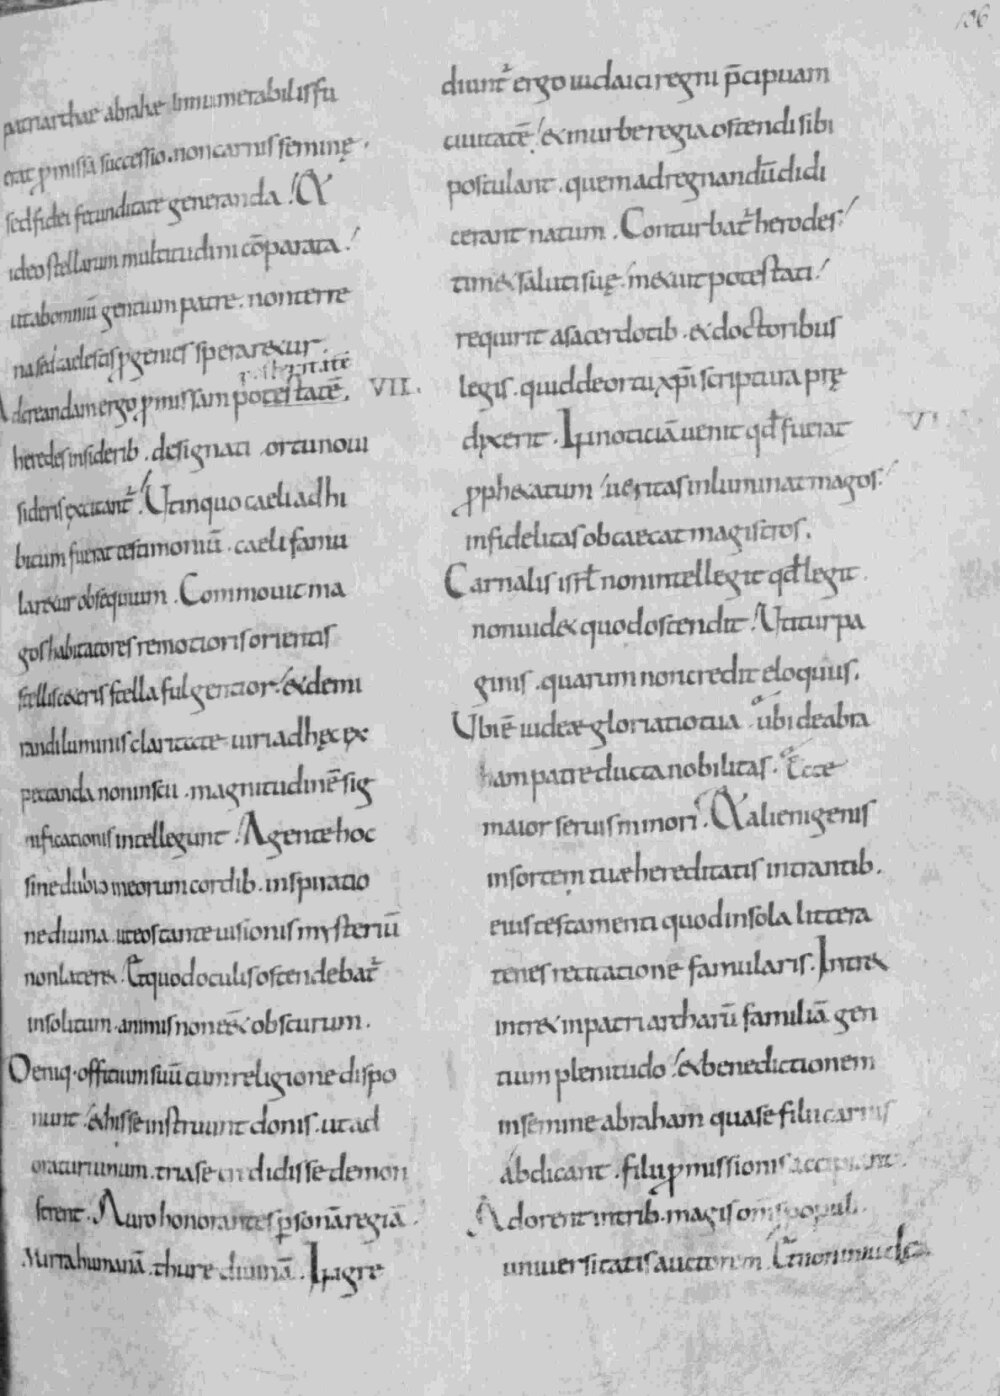 106
patriarchae abrahae innumerabilis fu
erat p̱missā successio. non carnis seminę.
sed fidei fecunditate generanda. Et
ideo stellarum multitudini cōparata.
ut ab omniū gentium patre. non terre
na sed caelestis p̱genies speraretur.
Ad creandam ergo p̱missam potestatē. VII.
posteritatē
heredes in siderib. designati. ortu noui
sideris excitant᷑. Ut in quo caeli adhi
bitum fuerat testimoniū. caeli famu
laretur obsequium. Commouit ma
gos habitatores remotioris orientis
stellis ceteris stella fulgentior. & de mi
randi luminis claritate uiri ad hęc ex
pectanda non inscii. magnitudinē sig
nificationis intellegunt. Agente hoc
sine dubio in eorum cordib. inspiratio
ne diuina. ut eos tante uisionis mysteriū
non lateret. Et quod oculis ostendebat᷑
insolitum. animis non eēt obscurum.
Deniq. officium suū cum religione dispo
nunt. & his se instruunt donis. ut ad
oraturi unum. tria se credidisse demon
strent. Auro honorantes p̱sonā regiā.
Mirra humanā. thure diuinā. Ingre
diunt᷑ ergo iudaici regni p̄cipuam
ciuitatē. & in urbe regia ostendi sibi
postulant. quem ad regnandū didi
cerant natum. Conturbat᷑ herodes.
tim& saluti suę. m&uit potestati.
requirit a sacerdotib. & doctoribus
legis. quid de ortu xp̄i scriptura prę
dixerit. In noticiā uenit qđ fuerat
p̱ph&atum. ueritas inluminat magos.
infidelitas obcaecat magistros.
Carnalis isrł non intellegit qđ legit.
non uid& quod ostendit. Utitur pa
ginis. quarum non credit eloquiis.
Ubi ē iudeae gloriatio tua. ubi de abra
ham patre ducta nobilitas. Ecce
maior seruis minori. Et alienigenis
in sortem tuae hereditatis intrantib.
eius testamenti quod in sola littera
tenes recitatione famularis. Intr&
intr& in patriarcharū familiā gen
tium plenitudo. & benedictionem
in semine abraham qua se filii carnis
abdicant. filii p̱missionis accipiant.
Adorent in trib. magis om̄s populi.
uniuersitatis auctorem. Et non in iude